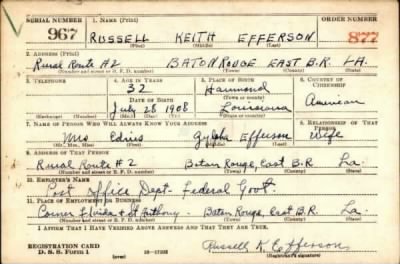 SERIAL NUMBER 1. Name (Print) ORDER NUMBER
967 RUSSELL KEITH EFFERSON 877
(First) (Middle) (Last)
2. Address (Print)
Rural Route #2 BATON ROUGE EAST B.R. LA.
(Number and street or R. F. D. number) (Town) (County) (State)
3. Telephone 4. Age in Years 5. Place of Birth 6. Country of Citizenship
32 Hammond
Date of Birth (Town or county)
July 28 1908 Louisiana American
(Exchange) (No.) (Mo.) (Day) (Yr.) (State or country)
7. Name of Person Who Will Always Know Your Address 8. Relationship of That Person
Mrs Efferson Wife
(Mr., Mrs., Miss) (First) (Middle) (Last)
9. Address of That Person
Rural Route #2 Baton Rouge, East B.R. La
(Number and street or R. F. D. number) (Town) (County) (State)
10. Employer's Name
Post Office Dept- Federal Govt
11. Place of Employment or Business
Corner Florida & St Anthony - Baton Rouge, East B.R. La
(Number and street or R. F. D. number) (Town) (County) (State)
I Affirm That I Have Verified Above Answers and That They Are True.
REGISTRATION CARD
D. S. S. Form 1 Russell K Efferson
(Registrant's signature)